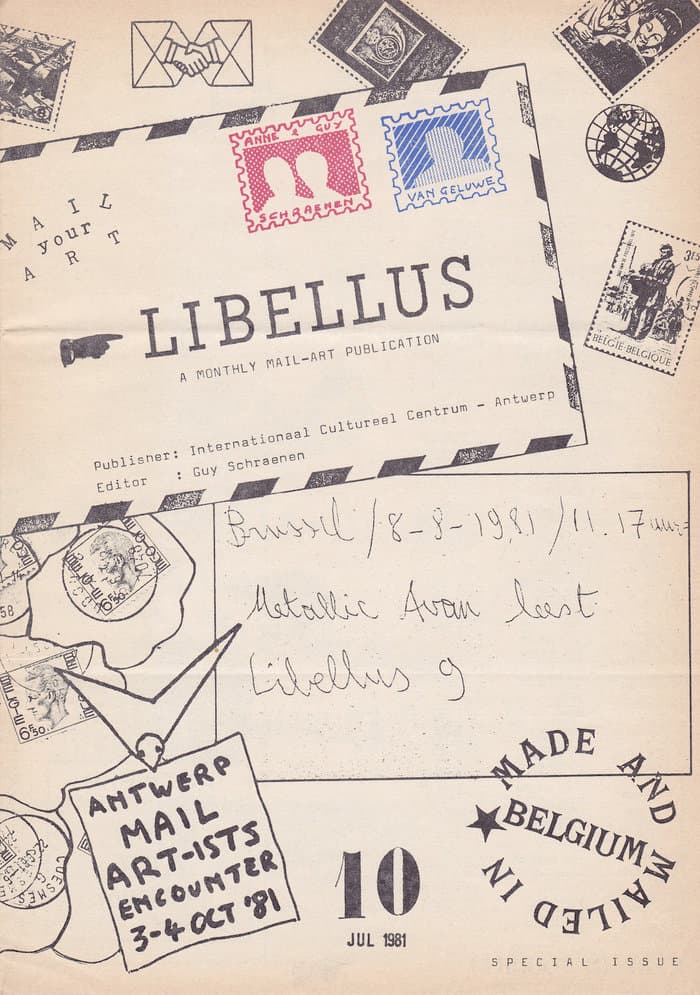 MAIL
your
ART
ANNE & GUY
SCHRAENEN
VAN GELUWE
LIBELLUS
A MONTHLY MAIL-ART PUBLICATION
Publisher: Internationaal Cultureel Centrum - Antwerp
Editor : Guy Schraenen
BELGIE-BELGIQUE
Brussel / 8-8-1981 / 11.17 uur
Metallic Avau leest
Libellus 9
6F50
6F50
58
CUESMES
ANTWERP
MAIL
ART-ISTS
ENCOUNTER
3-4 OCT '81
10
JUL 1981
MADE AND MAILED IN
BELGIUM
SPECIAL ISSUE